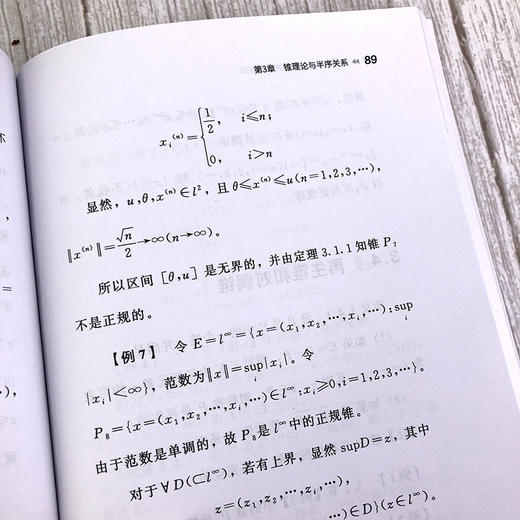 第3章 锥理论与半序关系 ≪ 89
x_i^{(n)} = { 1/2, i≤n;
0, i>n
显然，u,θ,x^{(n)}∈l²，且θ≤x^{(n)}≤u(n=1,2,3,⋯),
‖x^{(n)}‖=√n/2→∞(n→∞)。
所以区间[θ,u]是无界的，并由定理3.1.1知锥P₇
不是正规的。
【例7】 令E=l^∞={x=(x₁,x₂,⋯,x_i,⋯):sup_i
|x_i|<∞}，范数为‖x‖=sup_i|x_i|。令
P₈={x=(x₁,x₂,⋯,x_i,⋯)∈l^∞:x_i≥0,i=1,2,3,⋯}。
由于范数是单调的，故P₈是l^∞中的正规锥。
对于∀D(⊂l^∞)，若有上界，显然supD=z，其中
z=(z₁,z₂,⋯,z_i,⋯),
⋯)∈D}(z∈l^∞)。